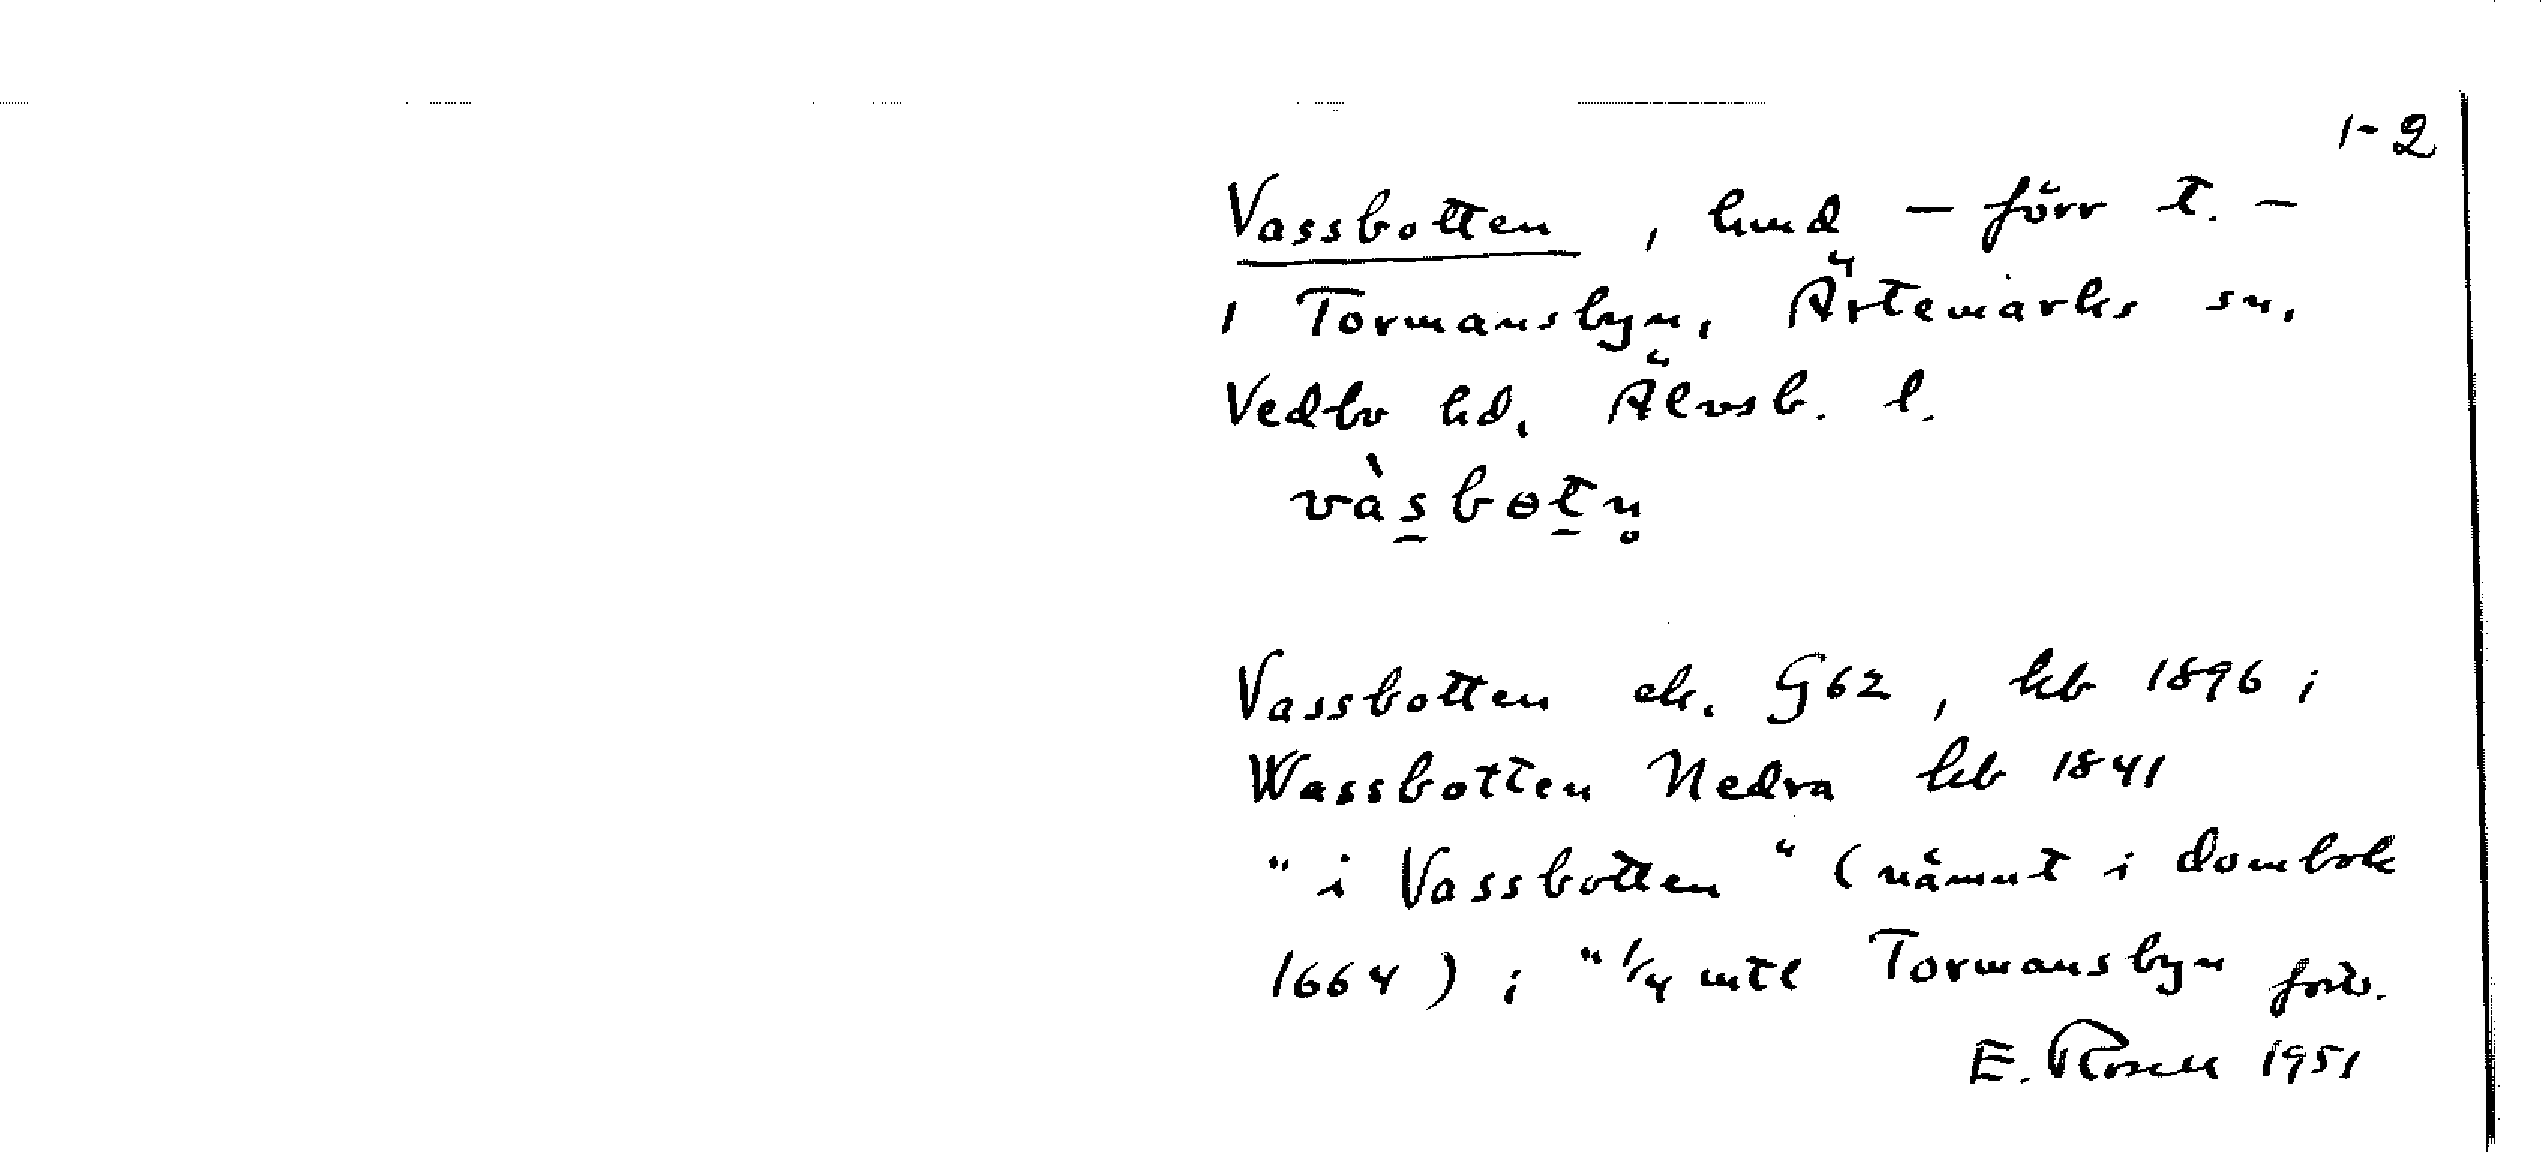 1-2
Vassbotten, hmd - förr t. -
i Tormansbyn, Ärtemarks sn,
Vedbo hd, Älvsb. l.
vàs̠bɵt̠n̥
Vassbotten ek. G62, kb 1896;
Wassbotten Nedra kb 1841
"i Vassbotten" (nämnt i dombok
1664); "1/4 mtl Tormansbyn
E. Rosell 1951